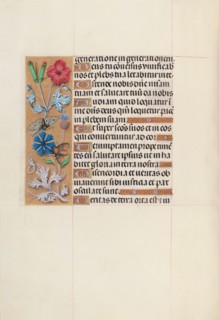 generatione in generationem.
Deus tu conversus vivificab
nos et plebs tua letabitur in te.
Ostende nobis dne misam
tuam et salutare tuū da nobis
Audiam quid loquatur ī
me dns deus qm loquetur pacē
in plebem suam
Et super scos suos et in eos
qui convertuntur ad cor
Veruntamen prope timē
tes eū salutare ipsius ut in ha
bitet gloria in terra nostra
Misericordia et veritas ob
viaverunt sibi iusticia et pax
osculate sunt
Veritas de terra orta est